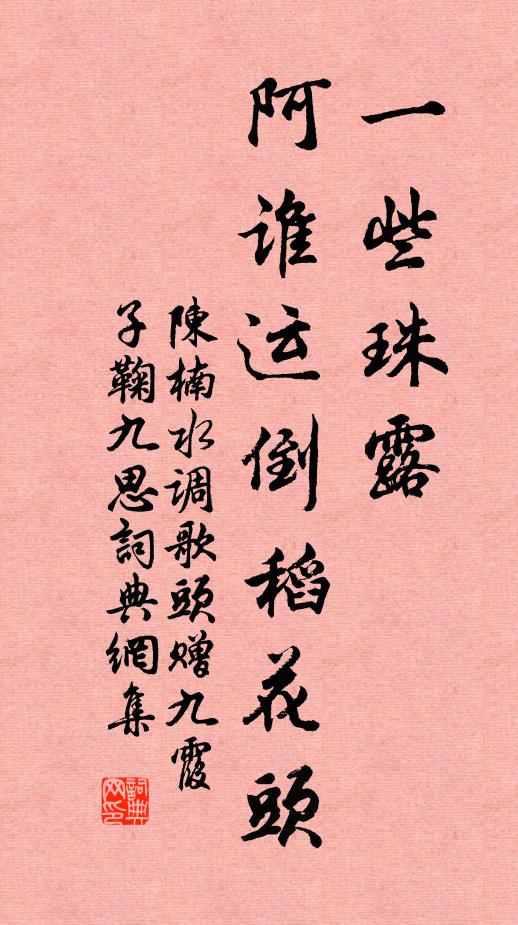 一些珠露
阿谁运倒稻花頭
陳楠水调歌頭赠九霞
子鞠九思詞典網集
詞典網印